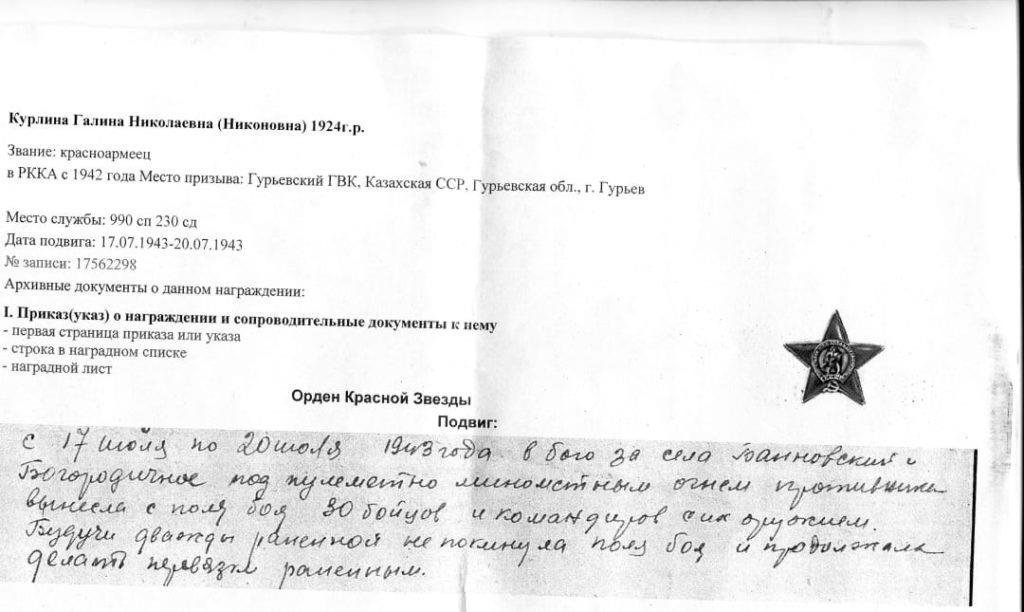 Курлина Галина Николаевна (Никоновна) 1924г.р.
Звание: красноармеец
в РККА с 1942 года Место призыва: Гурьевский ГВК, Казахская ССР, Гурьевская обл., г. Гурьев
Место службы: 990 сп 230 сд
Дата подвига: 17.07.1943-20.07.1943
№ записи: 17562298
Архивные документы о данном награждении:
I. Приказ(указ) о награждении и сопроводительные документы к нему
- первая страница приказа или указа
- строка в наградном списке
- наградной лист
Орден Красной Звезды
Подвиг:
С 17 июля по 20 июля 1943 года в бою за села Банновский и
Богородичное под пулеметно минометным огнем противника
вынесла с поля боя 30 бойцов и командиров с их оружием.
Будучи дважды раненной не покинула поля боя и продолжала
делать перевязки раненным.